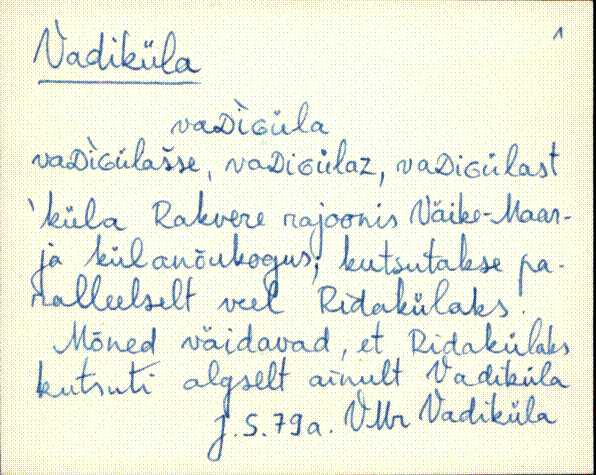 1
Vadiküla
vaDìGüla
vaDìGülašse, vaDiGülaz, vaDiGülast
`küla Rakvere rajoonis Väike-Maar-
ja külanõukogus; kutsutakse pa-
ralleelselt veel Ridakülaks.
Mõned väidavad, et Ridakülaks
kutsuti algselt ainult Vadiküla
J. S. 79a. VMr Vadiküla